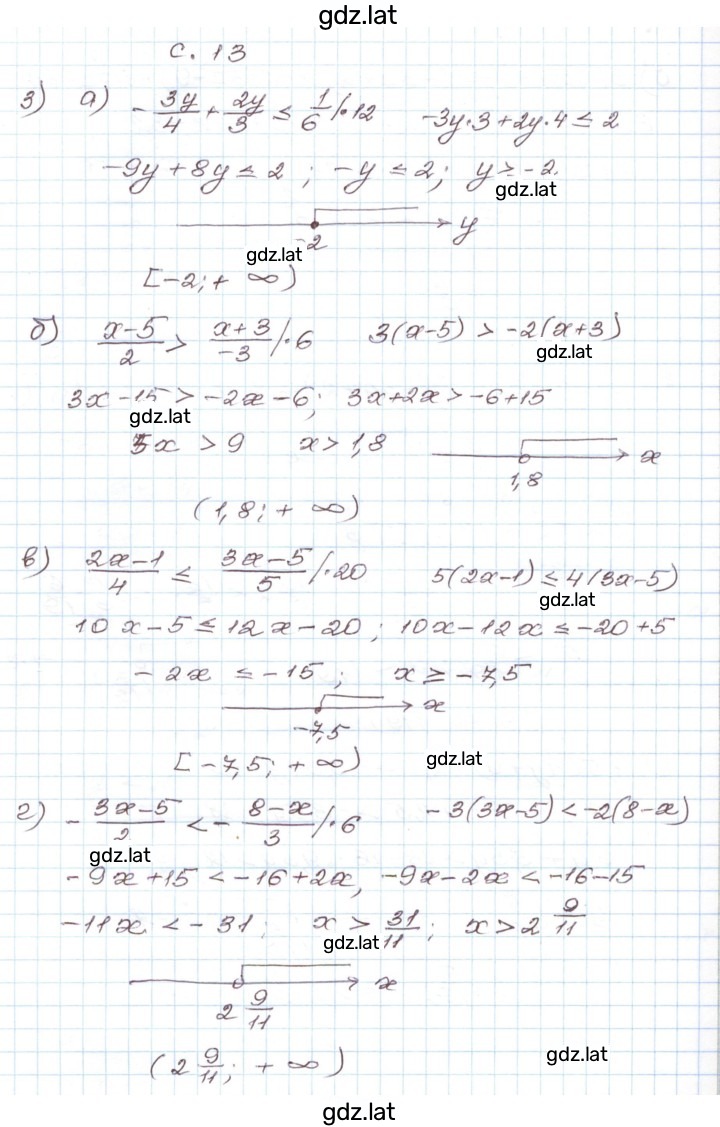 gdz.lat
с. 13
3) а) -3y/4 + 2y/3 ≤ 1/6 /·12 -3y·3+2y·4 ≤ 2
-9y+8y ≤ 2 ; -y ≤ 2; y ≥ -2.
gdz.lat
y
-2
gdz.lat
[-2;+ ∞)
б) x-5/2 > x+3/-3 /·6 3(x-5) > -2(x+3)
gdz.lat
3x-15 > -2x-6; 3x+2x > -6+15
gdz.lat
5x > 9 x > 1,8
x
1,8
(1,8;+ ∞)
в) 2x-1/4 ≤ 3x-5/5 /·20 5(2x-1) ≤ 4(3x-5)
gdz.lat
10x-5 ≤ 12x-20; 10x-12x ≤ -20+5
-2x ≤ -15; x ≥ -7,5
x
-7,5
[-7,5; + ∞)
gdz.lat
г) -3x-5/2 < -8-x/3 /·6 -3(3x-5) < -2(8-x)
gdz.lat
-9x+15 < -16+2x, -9x-2x < -16-15
-11x < -31; x > 31/11; x > 2 9/11
gdz.lat
x
2 9/11
(2 9/11; + ∞)
gdz.lat
gdz.lat